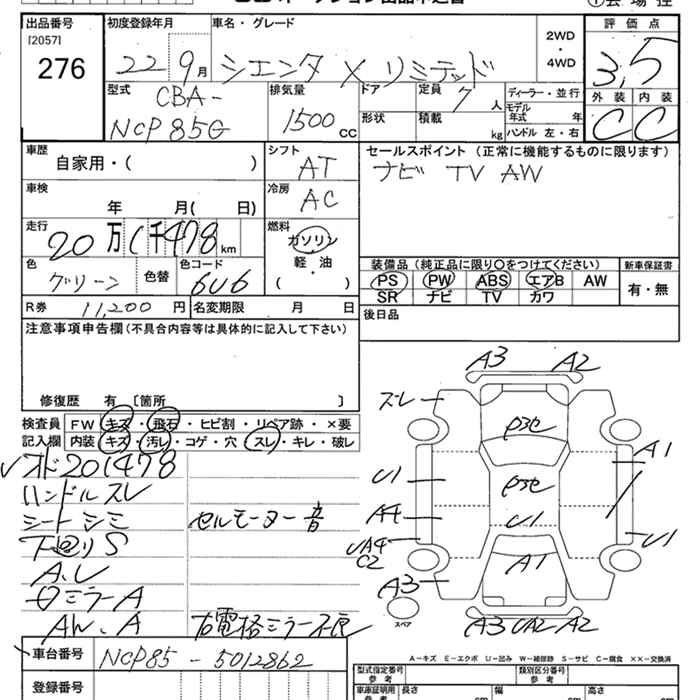 オークション出品申込書 ①会場控
出品番号 初度登録年月 車名・グレード 2WD・4WD 評価点
[2057]
276 22 9月 シエンタ X リミテッド 3,5
型式 排気量 ドア 定員 7人 ディーラー・並行 外装 内装
CBA-
NCP85G 1500cc 形状 積載 kg モデル年式 年 ハンドル 左・右 C C
車歴 シフト セールスポイント (正常に機能するものに限ります)
自家用・( ) AT ナビ TV AW
車検 冷房
年 月( 日) AC
走行 燃料
20万1千478km ガソリン
軽・油
( )
色 色替 色コード 装備品 (純正品に限り○をつけてください) 新車保証書
グリーン 6U6 PS PW ABS エアB AW 有・無
SR ナビ TV カワ
R券 11,200円 名変期限 月 日 後日品
注意事項申告欄 (不具合内容等は具体的に記入して下さい)
修復歴 有 [箇所 ]
検査員 FW キズ・飛石・ヒビ割・リペア跡・×要
記入欄 内装 キズ・汚レ・コゲ・穴・スレ・キレ・破レ
オド201478
ハンドルスレ
シートシミ セルモーター音
下回りS
A.U
ミラーA
AW.A 右電格ミラー不良
車台番号 NCP85-5012862
登録番号
A3 A2
スレ
P3セ
A1
U1 P3セ
A4 U1
UA4 C2 A1 U1
A3
スペア A3 UA2 A2
A-キズ E-エクボ U-凹み W-補修跡 S-サビ C-腐食 XX-交換済
型式指定番号 参考 類別区分番号 参考
車庫証明用 参考 長さ cm 幅 cm 高さ cm